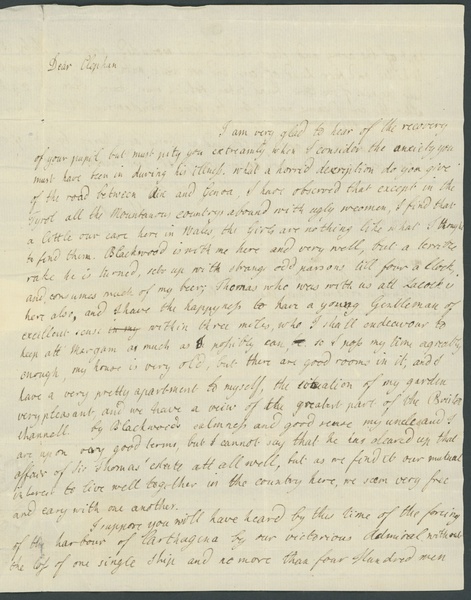 Dear Clephan
I am very glad to hear of the recovery
of your pupil, but must pity you extreamly when I consider the anxiety you
must have been in during his illness. what a horred description do you give
of the road between Aix and Genoa, I have observed that except in the
Tyrol all the Mountainous countrys abound with ugly weomen, I find that
a little our case here in Wales the Girls are nothing like what I thought
to find them. Blackwood is with me here and very well, but a terrible
rake he is turned, sets up with strange odd parsons till four a Clock,
and consumes much of my beer; Thomas who was with us att Lacock is
here also, and I have the happyness to have a young Gentleman of
excellent sense within three miles, who I shall endeavour to
keep att Margam as much as I possibly can, so I pass my time agreably
enough, my house is very old, but there are good rooms in it, and I
have a very pretty apartment to myself, the situation of my garden
very pleasant, and we have a view of the greatest part of the Bristol
channell. by Blackwoods calmness and good sense my uncle and I
are upon very good terms, but I cannot say that he has cleared up that
affair of Sir Thomas att all well, but as we find it our mutual
interest to live well together in the country here, we seem very free
and easy with one another.
I suppose you will have heard by this time of the forcing
of the harbour of Carthagena by our victorious Admiral, without
the loss of one single ship and no more than four Hundred men